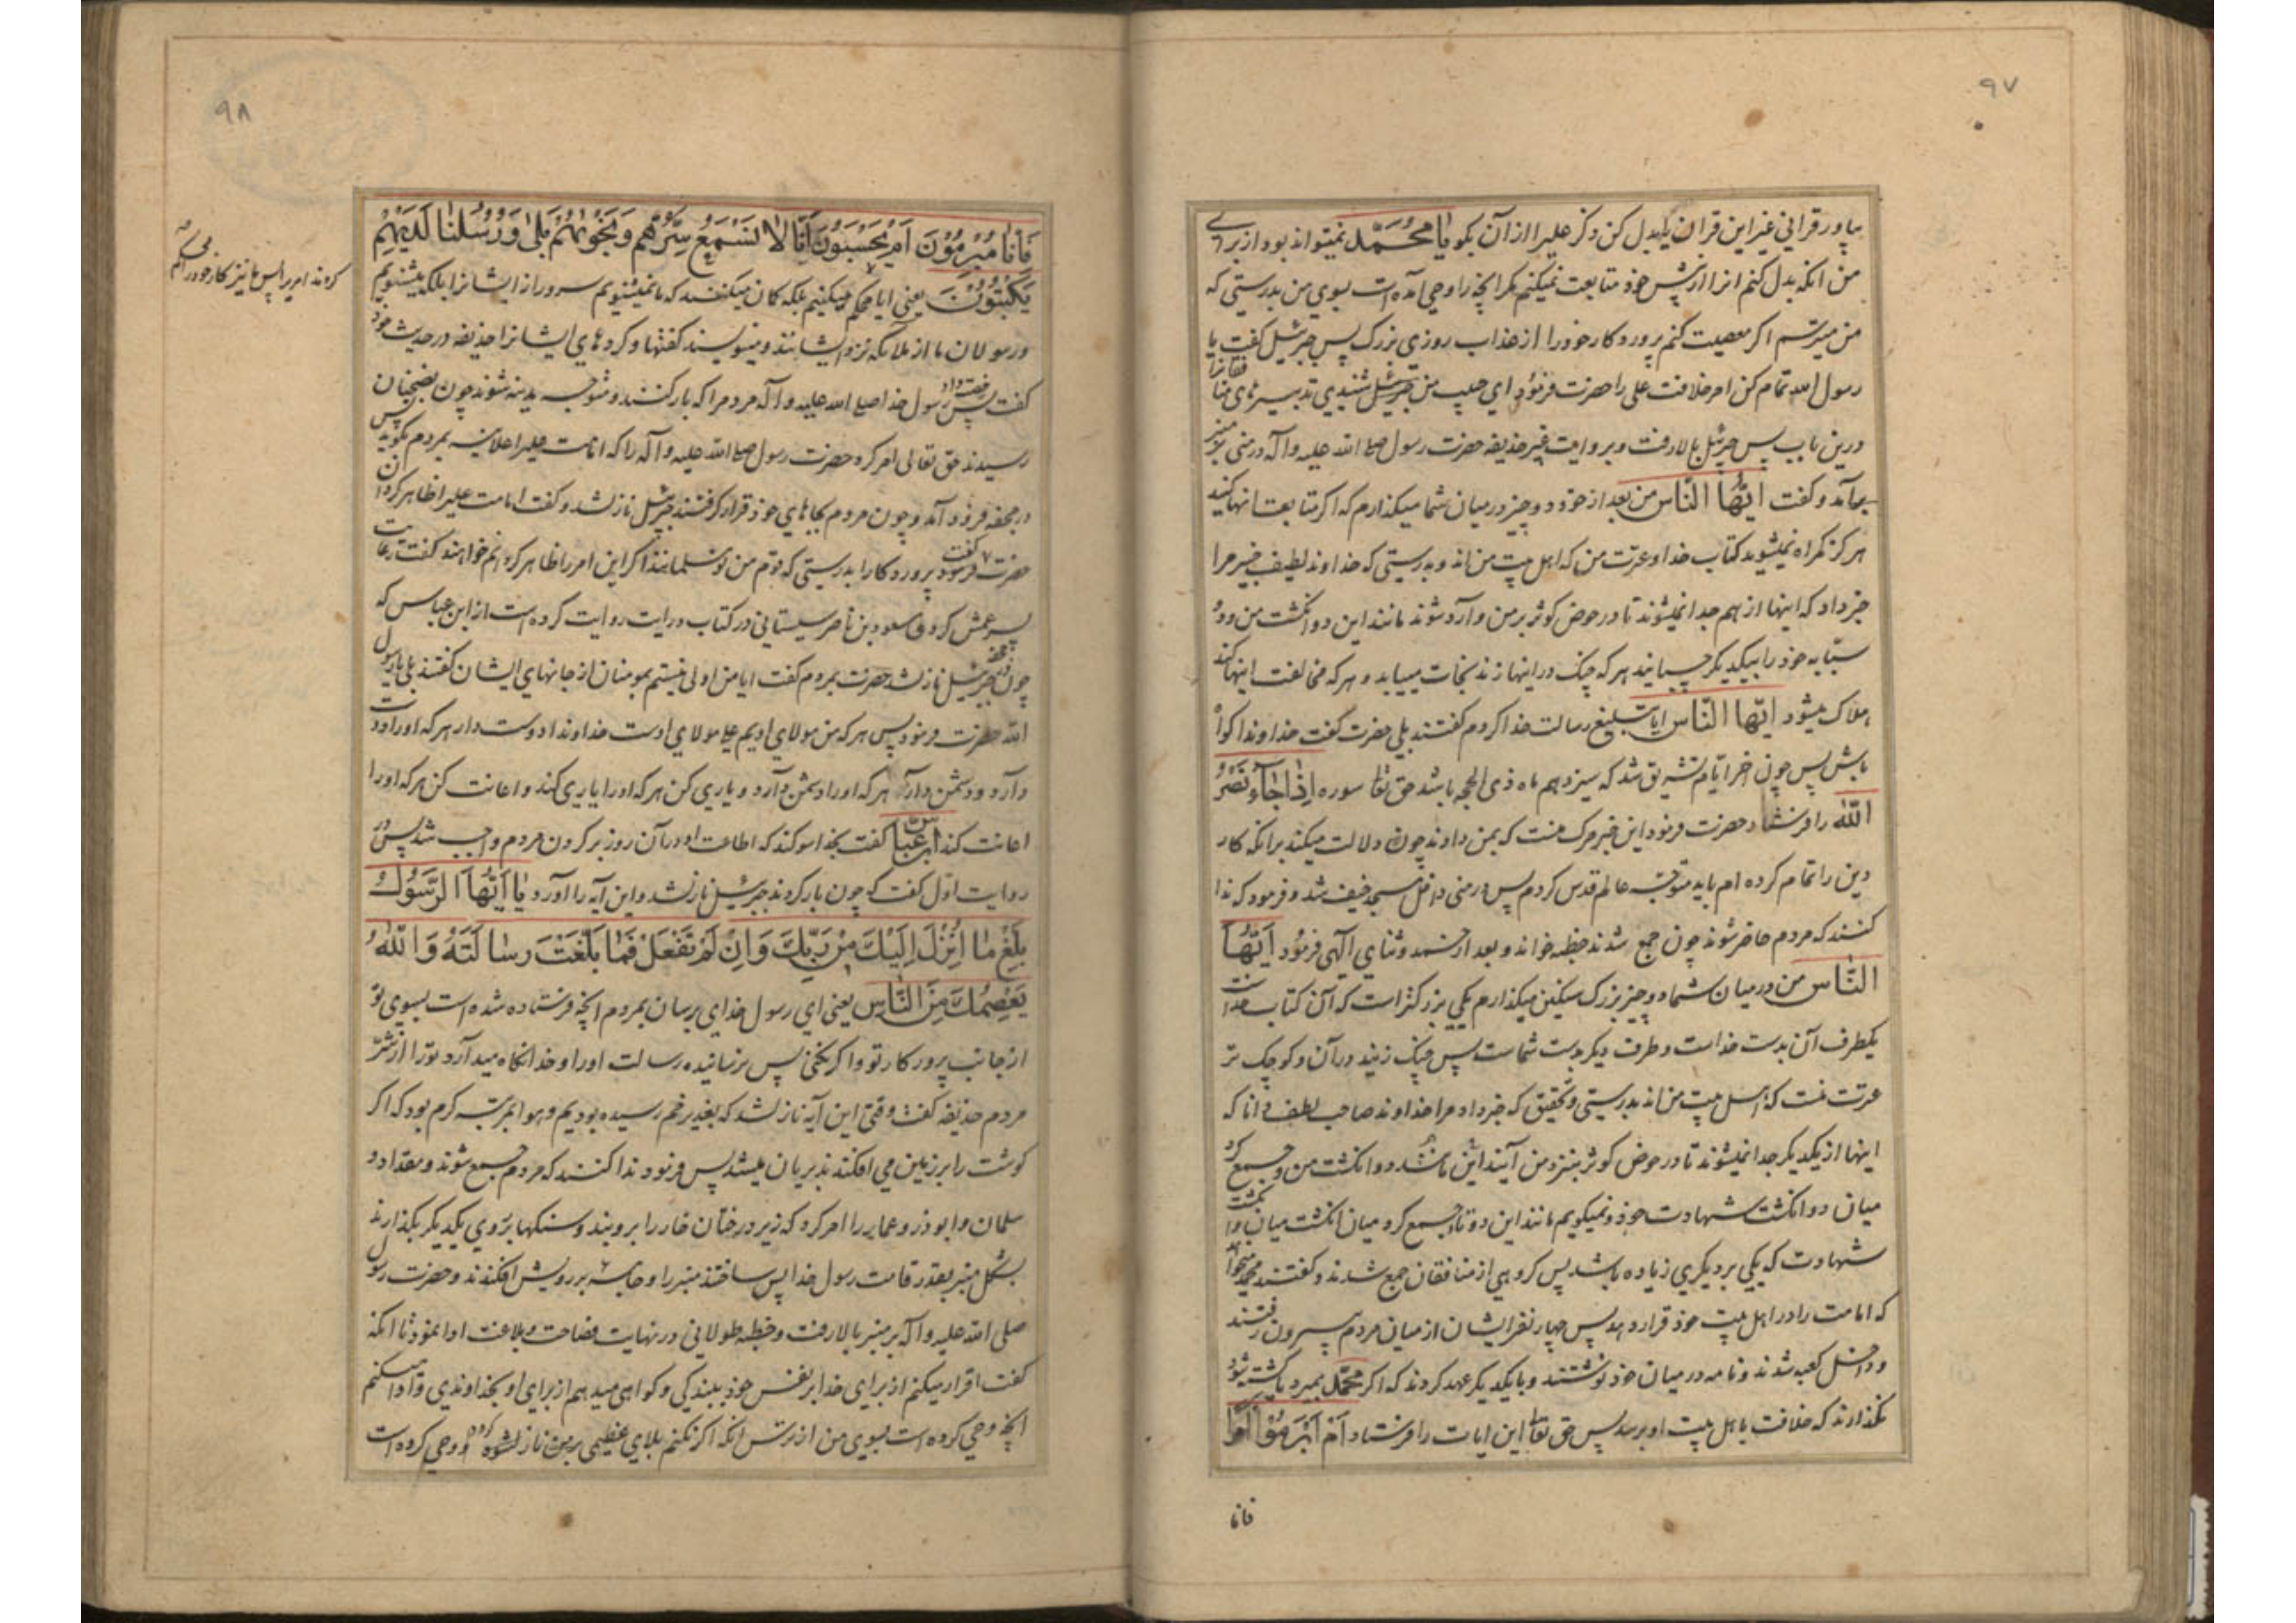 ۹۷
بیاور قرآنی غیر این قران یا بدل کن ذکر علیرا از آن بکو یا محمد نمیتواند بود از برای
من انکه بدل کنم انرا از پیش خود متابعت نمیکنم مکر انچه را وحی آمده است بسوی من بدرستی که
من میترسم اکر معصیت کنم پروردکار خود را از عذاب روزی بزرک پس جبرئیل کفت یا
رسول الله تمام کن امر خلافت علی را حضرت فرمود ای حبیب من جبرئیل شنیدی تدبیرهای منافقانرا
درین باب پس جبرئیل بالا رفت و بروایت غیر حذیفه حضرت رسول صلی الله علیه و آله در منی بر منبر
برآمد و کفت ایها الناس من بعد از خود دو چیز در میان شما میکذارم که اکر متابعت انها کنید
هرکز کمراه نمیشوید کتاب خدا و عترت من که اهل بیت من اند و بدرستی که خداوند لطیف خبیر مرا
خبر داد که اینها از هم جدا نمیشوند تا در حوض کوثر بر من وارد شوند مانند این دو انکشت من و دو
سبابه خود را بیکدیکر چسبانید هر که چنک در اینها زند نجات مییابد و هر که مخالفت اینها کند
هلاک میشود ایها الناس ایا تبلیغ رسالت خدا کردم کفتند بلی حضرت کفت خداوندا کواه
باش پس چون اخر ایام تشریق شد که سیزدهم ماه ذی الحجه باشد حق تعالی سوره اِذا جاء نَصْرُ
اللّه را فرستاد حضرت فرمود این خبر مرک منست که بمن دادند چون دلالت میکند برانکه کار
دین را تمام کرده ام باید متوجه عالم قدس کردم پس در منی داخل مسجد خیف شد و فرمود که ندا
کنند که مردم حاضر شوند چون جمع شدند خطبه خواند و بعد از حمد و ثنای الهی فرمود ایها
الناس من در میان شما دو چیز بزرک سنکین میکذارم یکی بزرکتر است که آن کتاب خداست
یکطرف آن بدست خداست و طرف دیکر بدست شماست پس چنک زنید در آن و کوچک تر
عترت منست که اهل بیت من اند بدرستی و تحقیق که خبر داد مرا خداوند صاحب لطف دانا که
اینها از یکدیکر جدا نمیشوند تا در حوض کوثر بنزد من آیند مانند این دو انکشت من و جمع کرد
میان دو انکشت شهادت خود و نمیکویم مانند این دوتا و جمع کرد میان انکشت میان و انکشت
شهادت که یکی بر دیکری زیاده باشد پس کروهی از منافقان جمع شدند و کفتند محمد میخواهد
که امامت را در اهل بیت خود قرار دهد پس چهار نفر ایشان از میان مردم بیرون رفتند
و داخل کعبه شدند و نامه در میان خود نوشتند و با یکدیکر عهد کردند که اکر محمد بمیرد یا کشته شود
نکذارند که خلافت باهل بیت او برسد پس حق تعالی این ایات را فرستاد اَم اَبْرَمُوا اَمْراً
فانا
۹۸
فَاِنّا مُبْرِمُوْنَ اَمْ یَحْسَبُوْنَ اَنّا لا نَسْمَعُ سِرَّهُم وَنَجْوٰیهُمْ بَلیٰ وَرُسُلُنا لَدَیْهِمْ
یَکْتُبُوْنَ یعنی ایا محکم میکنیم بلکه کمان میکنند که ما نمیشنویم سر و راز ایشانرا بلکه میشنویم
و رسولان ما از ملائکه نزد ایشانند و مینویسند کفتها و کردهای ایشانرا حذیفه در حدیث خود
کفت پس رخصت داد رسول خدا صلی الله علیه و آله مردم را که بار کنند و متوجه مدینه شوند چون بضجنان
رسیدند حق تعالی امر کرد حضرت رسول صلی الله علیه و آله را که امامت علیرا علانیه بمردم بکوید پس
در جحفه فرود آمد و چون مردم بجاهای خود قرار کرفتند جبرئیل نازل شد و کفت امامت علیرا ظاهر کردان
حضرت کفت پروردکارا بدرستی که قوم من نومسلمانند اکر این امر را ظاهر کردانم خواهند کفت رعایت
پسر عمش کرد و مسعود بن ناصر سیستانی در کتاب درایت روایت کرده است از ابن عباس که
چون در جحفه جبرئیل نازل شد حضرت بمردم کفت ایا من اولی نیستم بمومنان از جانهای ایشان کفتند بلی یا رسول
الله حضرت فرمود پس هر که من مولای اویم علی مولای اوست خداوندا دوست دار هر که او را دوست
دارد و دشمن دار هر که او را دشمن دارد و یاری کن هر که او را یاری کند و اعانت کن هر که او را
اعانت کند ابن عباس کفت بخدا سوکند که اطاعت او در آن روز بر کردن مردم واجب شد پس در
روایت اول کفت که چون بار کردند جبرئیل نازل شد و این آیه را آورد یا اَیُّهَا الرَّسُوْلُ
بَلِّغْ ما اُنْزِلَ اِلَیْكَ مِنْ رَبِّكَ وَاِنْ لَمْ تَفْعَلْ فَما بَلَّغْتَ رِسالَتَهُ وَاللّٰهُ
یَعْصِمُكَ مِنَ النّاسِ یعنی ای رسول خدای برسان بمردم انچه فرستاده شده است بسوی تو
از جانب پرورکار تو و اکر نکنی پس نرسانیده رسالت او را و خدا نکاه میدارد تو را از شر
مردم حذیفه کفت وقتی این آیه نازل شد که بغدیر خم رسیده بودیم و هوا بمرتبه کرم بود که اکر
کوشت را بر زمین می افکندند بریان میشد پس فرمود ندا کنند که مردم جمع شوند و مقداد و
سلمان و ابوذر و عمار را امر کرد که زیر درختان خار را بروبند و سنکها بروی یکدیکر بکذارند
بشکل منبر بقدر قامت رسول خدا پس ساختند منبر را و جامه بر رویش افکندند و حضرت رسول
صلی الله علیه و آله بر منبر بالا رفت و خطبه طولانی در نهایت فصاحت و بلاغت ادا نمود تا انکه
کفت اقرار میکنم از برای خدا بر نفس خود ببندکی و کواهی میدهم از برای او بخداوندی و ادا میکنم
انچه وحی کرده است بسوی من از ترس انکه اکر نکنم بلای عظیمی بر من نازل شود و وحی کرده است
کردند امریرا پس ما نیز کار خود را محکم